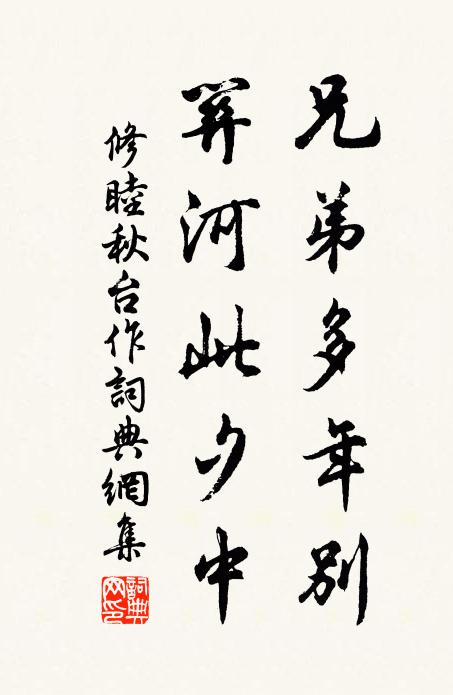 兄弟多年別
關河此夕中
修睦秋台作詞典網集
詞典
网印